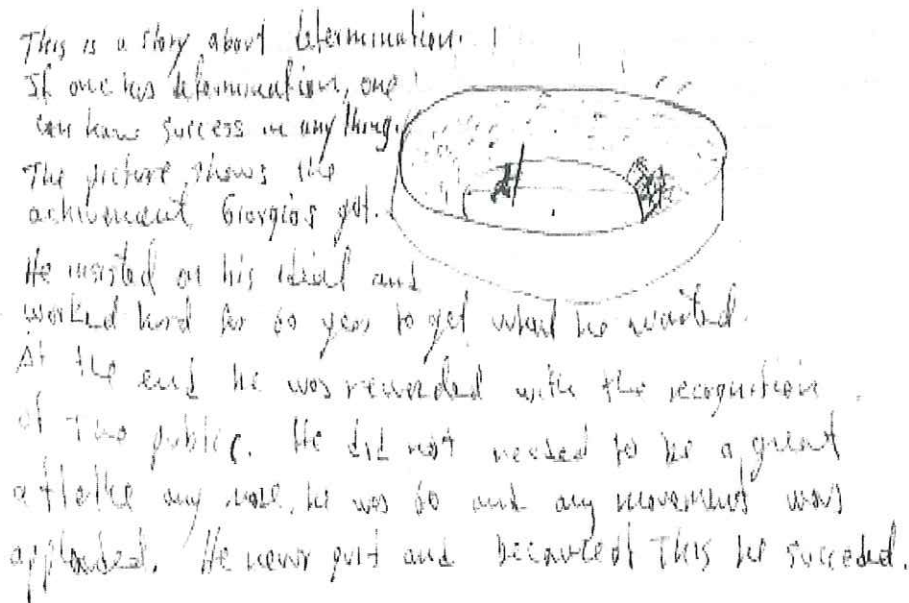 This is a story about determination.
If one has determination, one
can have success in any thing.
The picture shows the
achivement Giorgios got.
He insisted on his ideal and
worked hard for 60 years to get what he wanted.
At the end he was rewarded with the recognition
of the public. He did not needed to be a great
athlete any more, he was 60 and any movement was
applauded. He never quit and because of This he succeded.